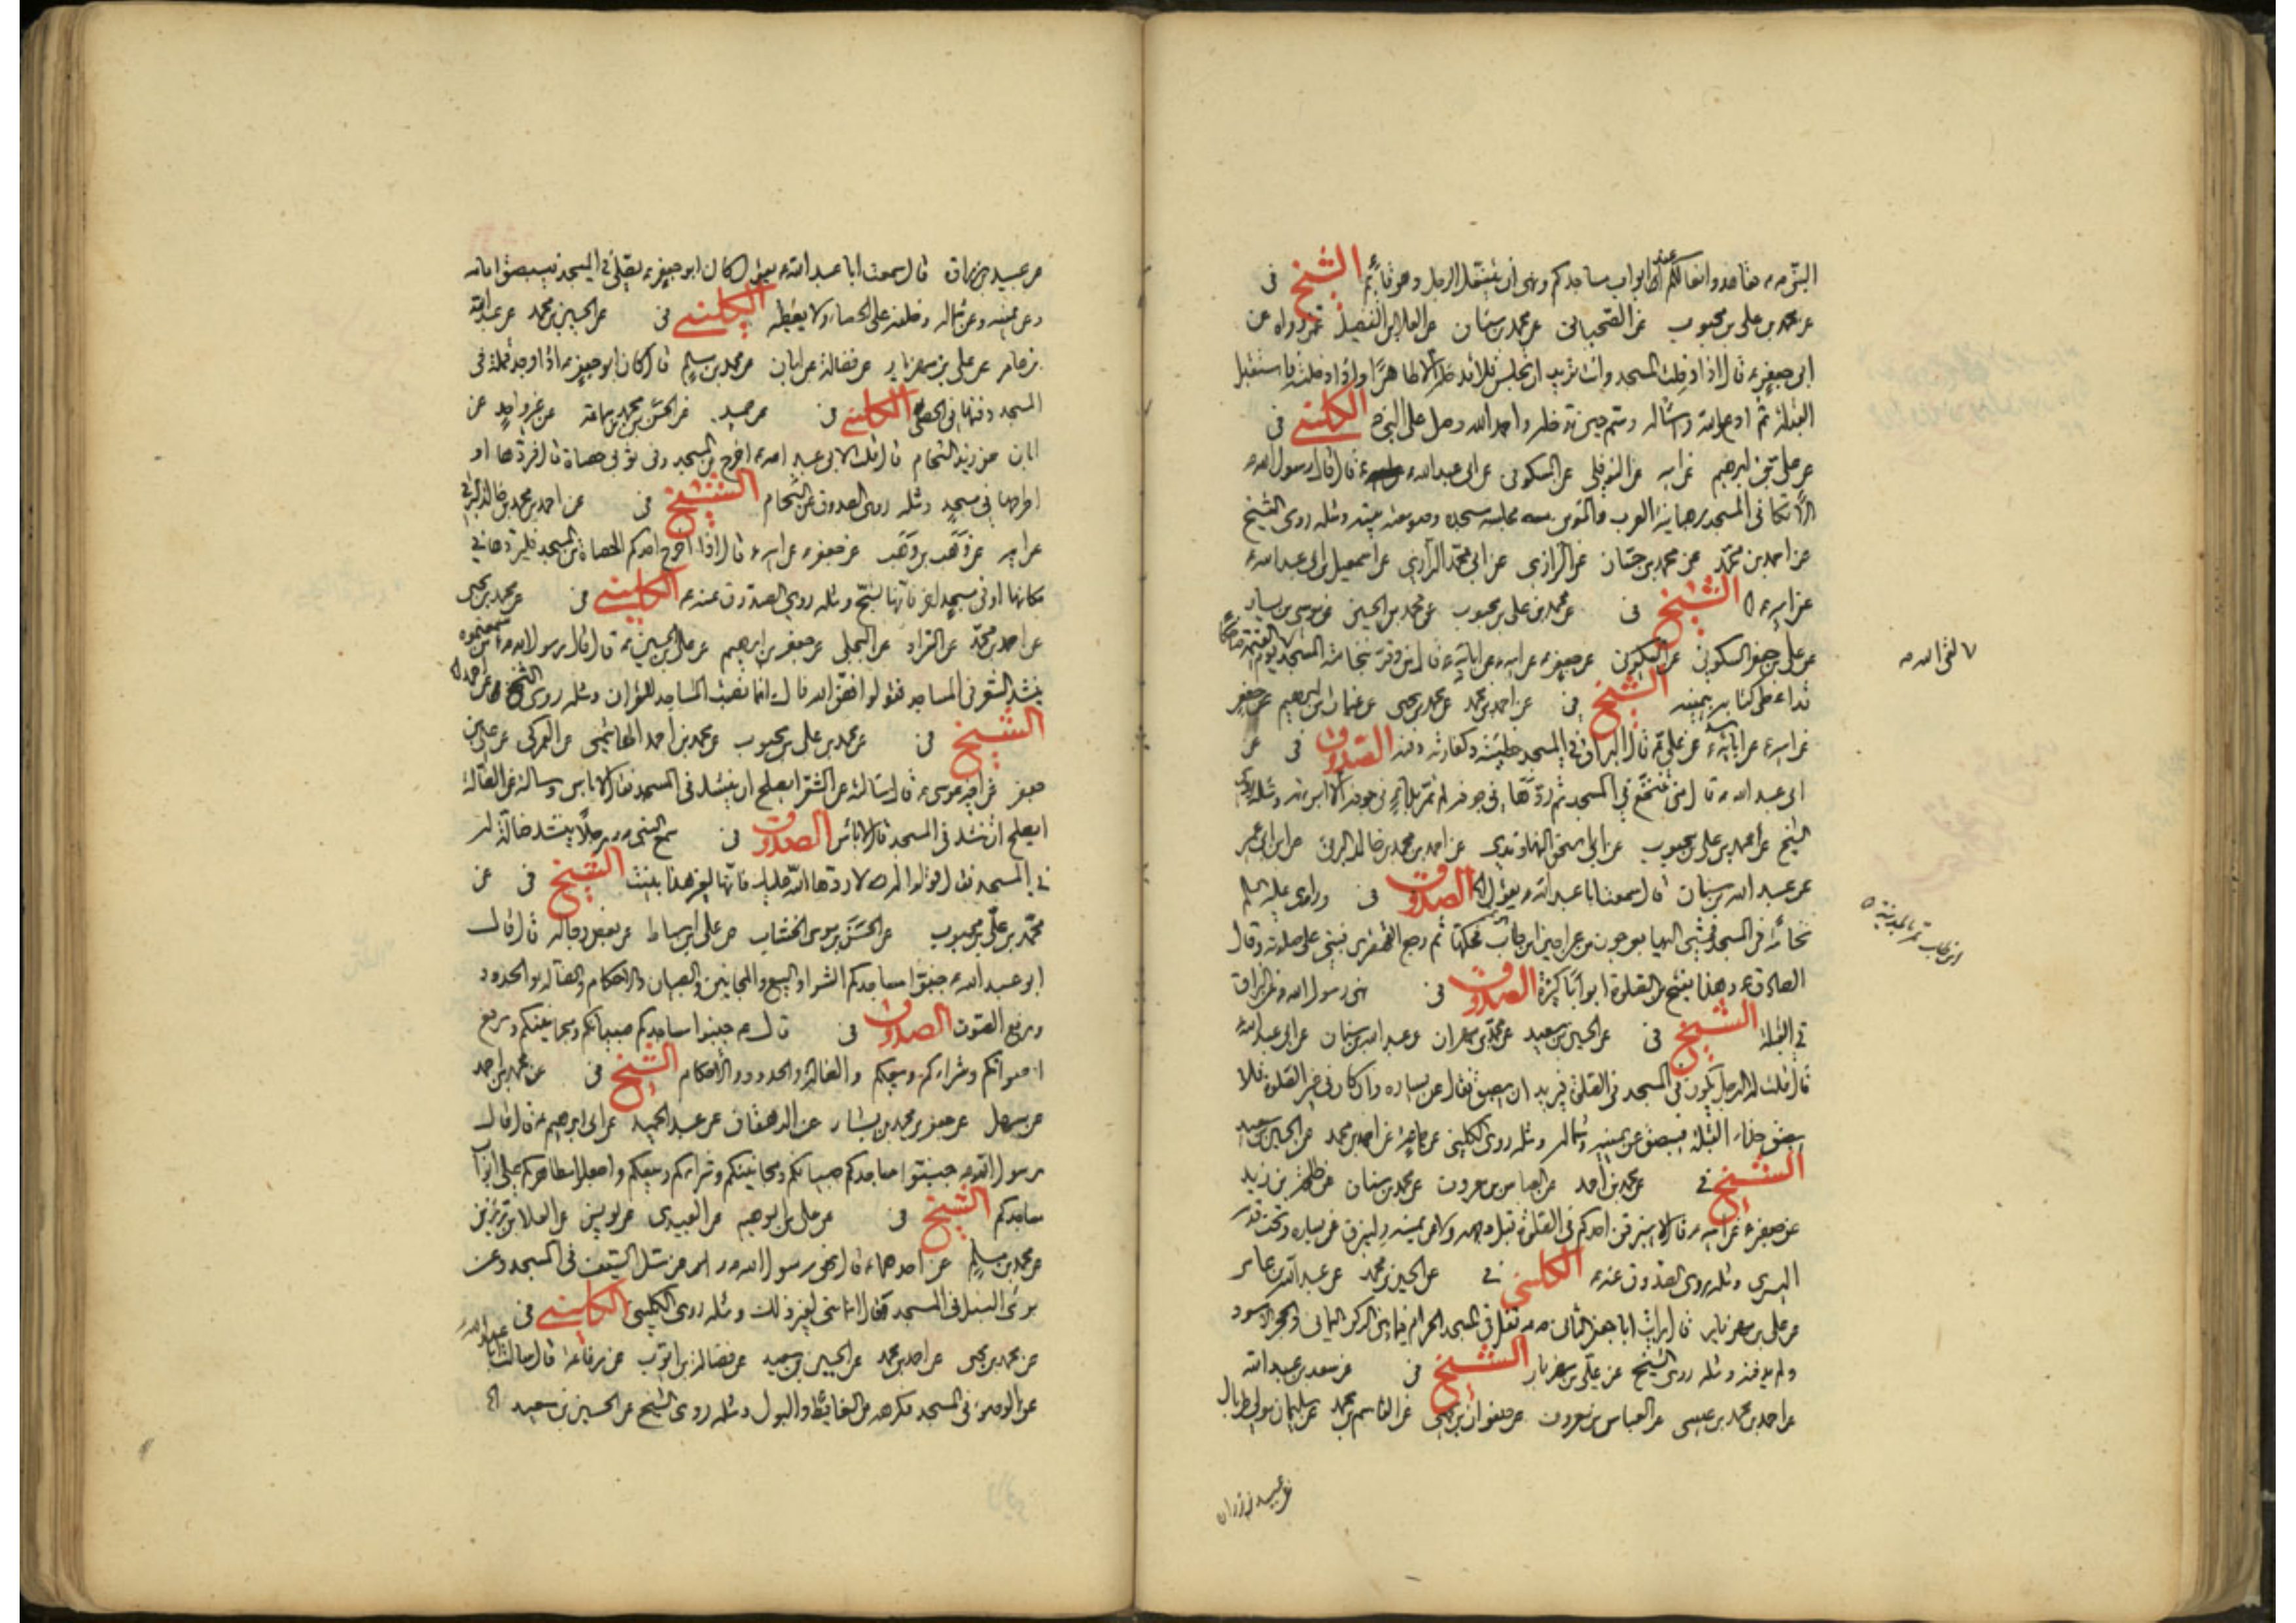 النبي ص تعاهدوا نعالكم عند ابواب مساجدكم ونهى ان يتنعل الرجل وهو قائم الشيخ في
عن محمد بن علي بن محبوب عن محمد بن سنان عن العلا بن الفضيل عمن رواه عن
ابي جعفر ع قال اذا دخلت المسجد وانت تريد ان تجلس فلا تدخله الا طاهرا واذا دخلت فاستقبل
القبلة ثم ادع الله واسأله وسم حين تدخله واحمد الله وصل على النبي الكليني في
عن علي بن ابرهيم عن ابيه عن النوفلي عن السكوني عن ابي عبد الله ع قال قال رسول الله ص
الاتكاء في المسجد رهبانية العرب والمؤمن مجلسه مسجده وصومعته بيته ومثله روى الشيخ
عن احمد بن محمد عن محمد بن حسان عن الرازي عن ابي محمد الرازي عن اسمعيل بن ابي عبد الله ع
عن ابيه ع الشيخ في عن محمد بن علي بن محبوب عن محمد بن الحسين عن موسى بن يسار
عن علي بن جعفر السكوني عن السكوني عن جعفر ع عن ابيه ع عن ابائه ع قال من وقر بنخامته المسجد يوم القيمة ضاحكا
لقى الله
قد اعطي كتابه بيمينه الشيخ في عن احمد بن محمد عن محمد بن يحيى عن غياث بن ابرهيم عن جعفر
عن ابيه ع عن ابائه ع عن علي ع قال البزاق في المسجد خطيئة وكفارته دفنه الصدوق في عن
ابي عبد الله ع قال من تنخع في المسجد ثم ردها في جوفه لم تمر بداء في جوفه الا ابراته ومثله روى
الشيخ عن محمد بن علي بن محبوب عن ابي اسحق النهاوندي عن احمد بن محمد بن خالد البرقي عن ابن ابي عمير
عن عبد الله بن سنان قال سمعت ابا عبد الله ع يقول الصدوق في وراى عليه السلم
نخامة في المسجد فمشى اليها بعرجون من عراجين ابن طاب فحكها ثم رجع القهقرى فبنى على صلاته وقال
ابن طاب تمر بالمدينة
الصادق ع وهذا يفتح من الصلوة ابوابا كثيرة الصدوق في نهى رسول الله ص عن البزاق
في القبلة الشيخ في عن الحسين بن سعيد عن محمد بن مهران وعبد الله بن سنان عن ابي عبد الله ع
قال قلت له الرجل يكون في المسجد في الصلوة فيريد ان يبصق فقال عن يساره وان كان في غير الصلوة فلا
يبصق حذاء القبلة ويبصق عن يمينه وشماله ومثله روى الكليني عن جماعة عن احمد بن محمد عن الحسين بن سعيد
الشيخ في عن محمد بن احمد عن العباس بن معروف عن محمد بن سنان عن طلحة بن زيد
عن جعفر ع عن ابيه ع قال لا يبزقن احدكم في الصلوة قبل وجهه ولا عن يمينه وليبزق عن يساره وتحت قدمه
اليسرى ومثله روى الصدوق عنه ع الكليني في عن الحسين بن محمد عن عبد الله بن عامر
عن علي بن مهزيار قال رايت ابا جعفر الثاني ع تفل في المسجد الحرام فيما بين الركن اليماني والحجر الاسود
ولم يدفنه ومثله روى الشيخ عن علي بن مهزيار الشيخ في عن سعد بن عبد الله
عن احمد بن محمد بن عيسى عن العباس بن معروف عن صفوان بن يحيى عن القاسم بن محمد عن سليمان مولى طربال
عن عبيد بن زرارة
عن عبيد بن زرارة قال سمعت ابا عبد الله ع يقول كان ابو جعفر ع يصلي في المسجد فيبصق امامه
وعن يمينه وعن شماله وخلفه على الحصا ولا يغطيه الكليني في عن الحسين بن محمد عن عبد الله
بن عامر عن علي بن مهزيار عن فضالة عن ابان عن محمد بن مسلم قال كان ابو جعفر ع اذا وجد قملة في
المسجد دفنها في الحصى الكليني في عن حميد عن الحسن بن محمد بن سماعة عن غير واحد عن
ابان عن زيد الشحام قال قلت لابي عبد الله ع اخرج من المسجد وفي ثوبي حصاة قال فردها او
اطرحها في مسجد ومثله روى الصدوق عن الشحام الشيخ في عن احمد بن محمد بن خالد البرقي
عن ابيه عن وهب بن وهب عن جعفر ع عن ابيه ع قال اذا اخرج احدكم الحصاة من المسجد فليردها في
مكانها او في مسجد اخر فانها تسبح ومثله روى الصدوق عنه ع الكليني في عن محمد بن يحيى
عن احمد بن محمد عن البجلي عن جعفر بن ابرهيم عن علي بن الحسين ع قال قال رسول الله ص من سمعتموه
ينشد الشعر في المساجد فقولوا فض الله فاك انما نصبت المساجد للقران ومثله روى الشيخ
الشيخ في عن محمد بن علي بن محبوب عن محمد بن احمد الهاشمي عن العمركي عن علي بن
جعفر عن اخيه موسى ع قال سالته عن الشعر ايصلح ان ينشد في المسجد فقال لا باس وسالته عن الضالة
ايصلح ان تنشد في المسجد قال لا باس الصدوق في سمع النبي ص رجلا ينشد ضالة له
في المسجد فقال قولوا له لا ردها الله عليك فانها لغير هذا بنيت الشيخ في عن
محمد بن علي بن محبوب عن الحسن بن موسى الخشاب عن علي بن اسباط عن بعض رجاله قال قال
ابو عبد الله ع جنبوا مساجدكم الشرا والبيع والمجانين والصبيان والاحكام والضالة والحدود
ورفع الصوت الصدوق في قال ع جنبوا مساجدكم صبيانكم ومجانينكم ورفع
اصواتكم وشراءكم وبيعكم والضالة والحدود والاحكام الشيخ في عن محمد بن احمد
عن سهل عن جعفر بن محمد بن بشار عن الدهقان عن عبد الحميد عن ابي ابرهيم ع قال قال
رسول الله ص جنبوا مساجدكم صبيانكم ومجانينكم وشراءكم وبيعكم واجعلوا مطاهركم على ابواب
مساجدكم الشيخ في عن علي بن ابرهيم عن العبيدي عن يونس عن العلا بن رزين
عن محمد بن مسلم عن احدهما ع قال نهى رسول الله ص عن سل السيف في المسجد وعن
برى النبل في المسجد وقال انما بنى لغير ذلك ومثله روى الكليني الكليني في
عن محمد بن يحيى عن احمد بن محمد عن الحسين بن سعيد عن فضالة بن ايوب عن رفاعة قال سالت ابا عبد الله ع
عن الوضوء في المسجد فكرهه من الغائط والبول ومثله روى الشيخ عن الحسين بن سعيد